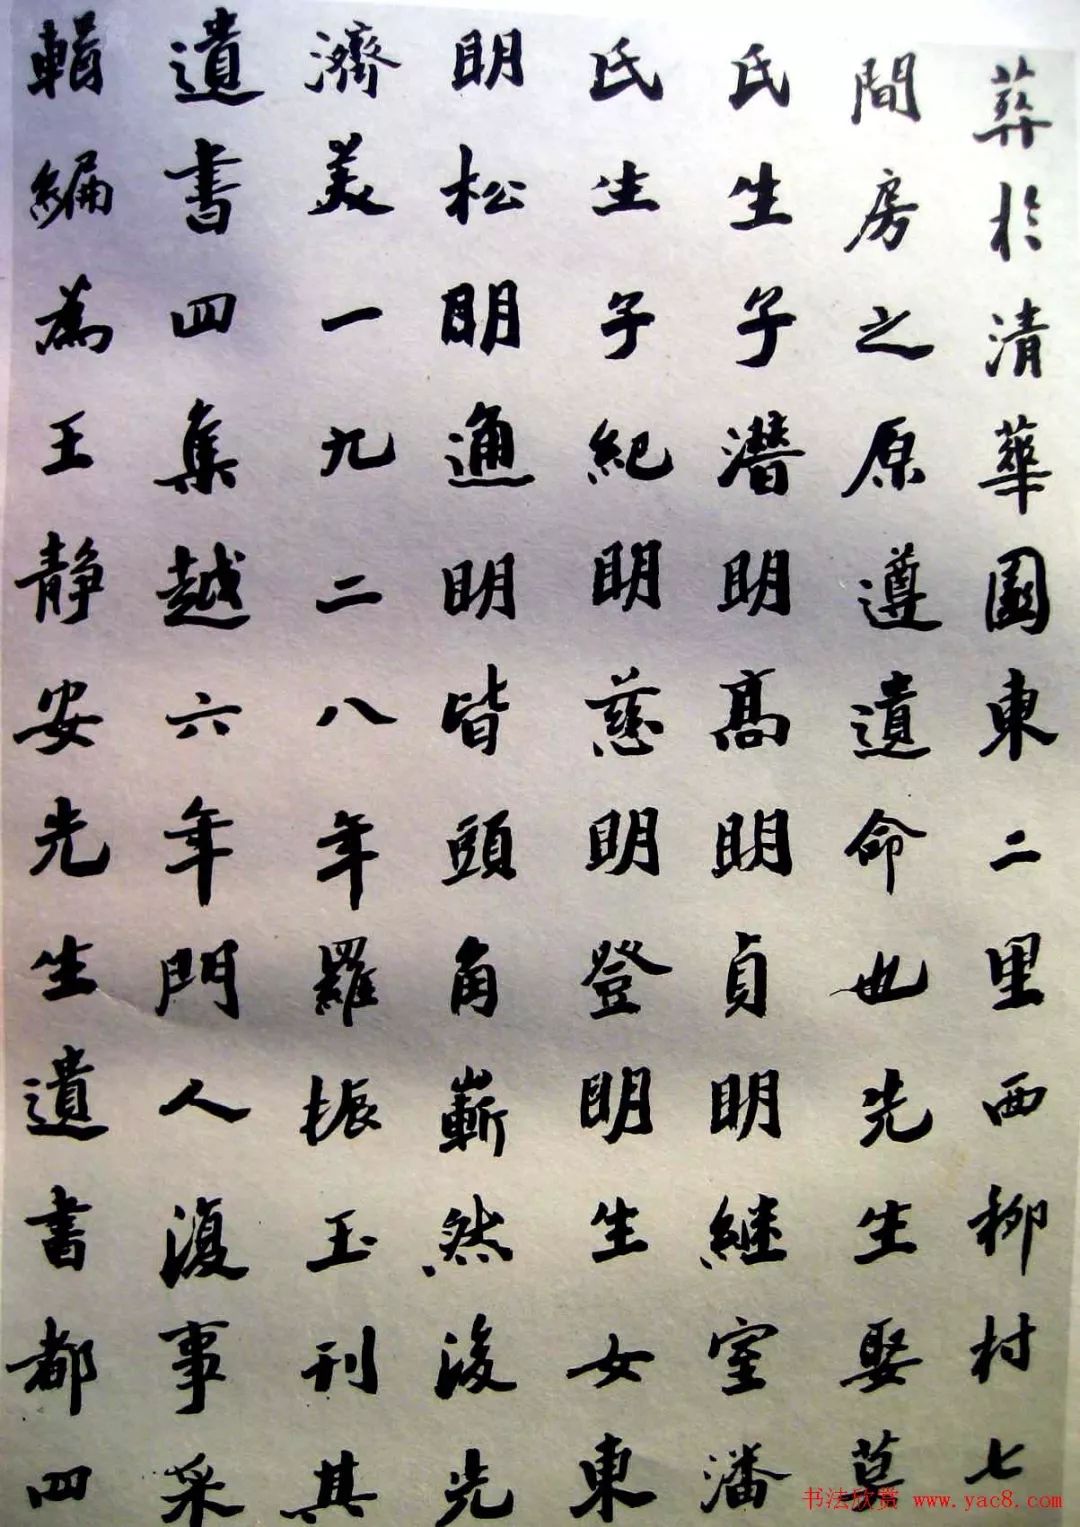 葬於清華園東二里西柳村七
間房之原遵遺命也先生娶莫
氏生子潛明明高明貞明繼室潘
氏生子紀明明慈明登明生女東
明松明通明皆頭角嶄然後先
濟美一九二八年羅振玉刊其
遺書四集越六年門人復事采
輯編為王静安先生遺書都四
书法欣赏 www.yac8.com